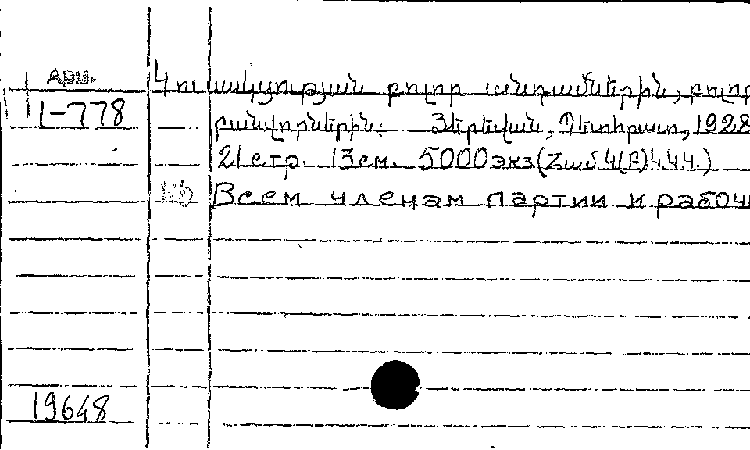 арм.
Կուսակցության բոլոր անդամներին, բոլոր
Ц-778
բանվորներին: Յերեվան, Պետհրատ, 1928
21 стр. 13см. 5000экз(Համ4(Բ)4.4.4.)
Всем членам партии и рабочи
19648